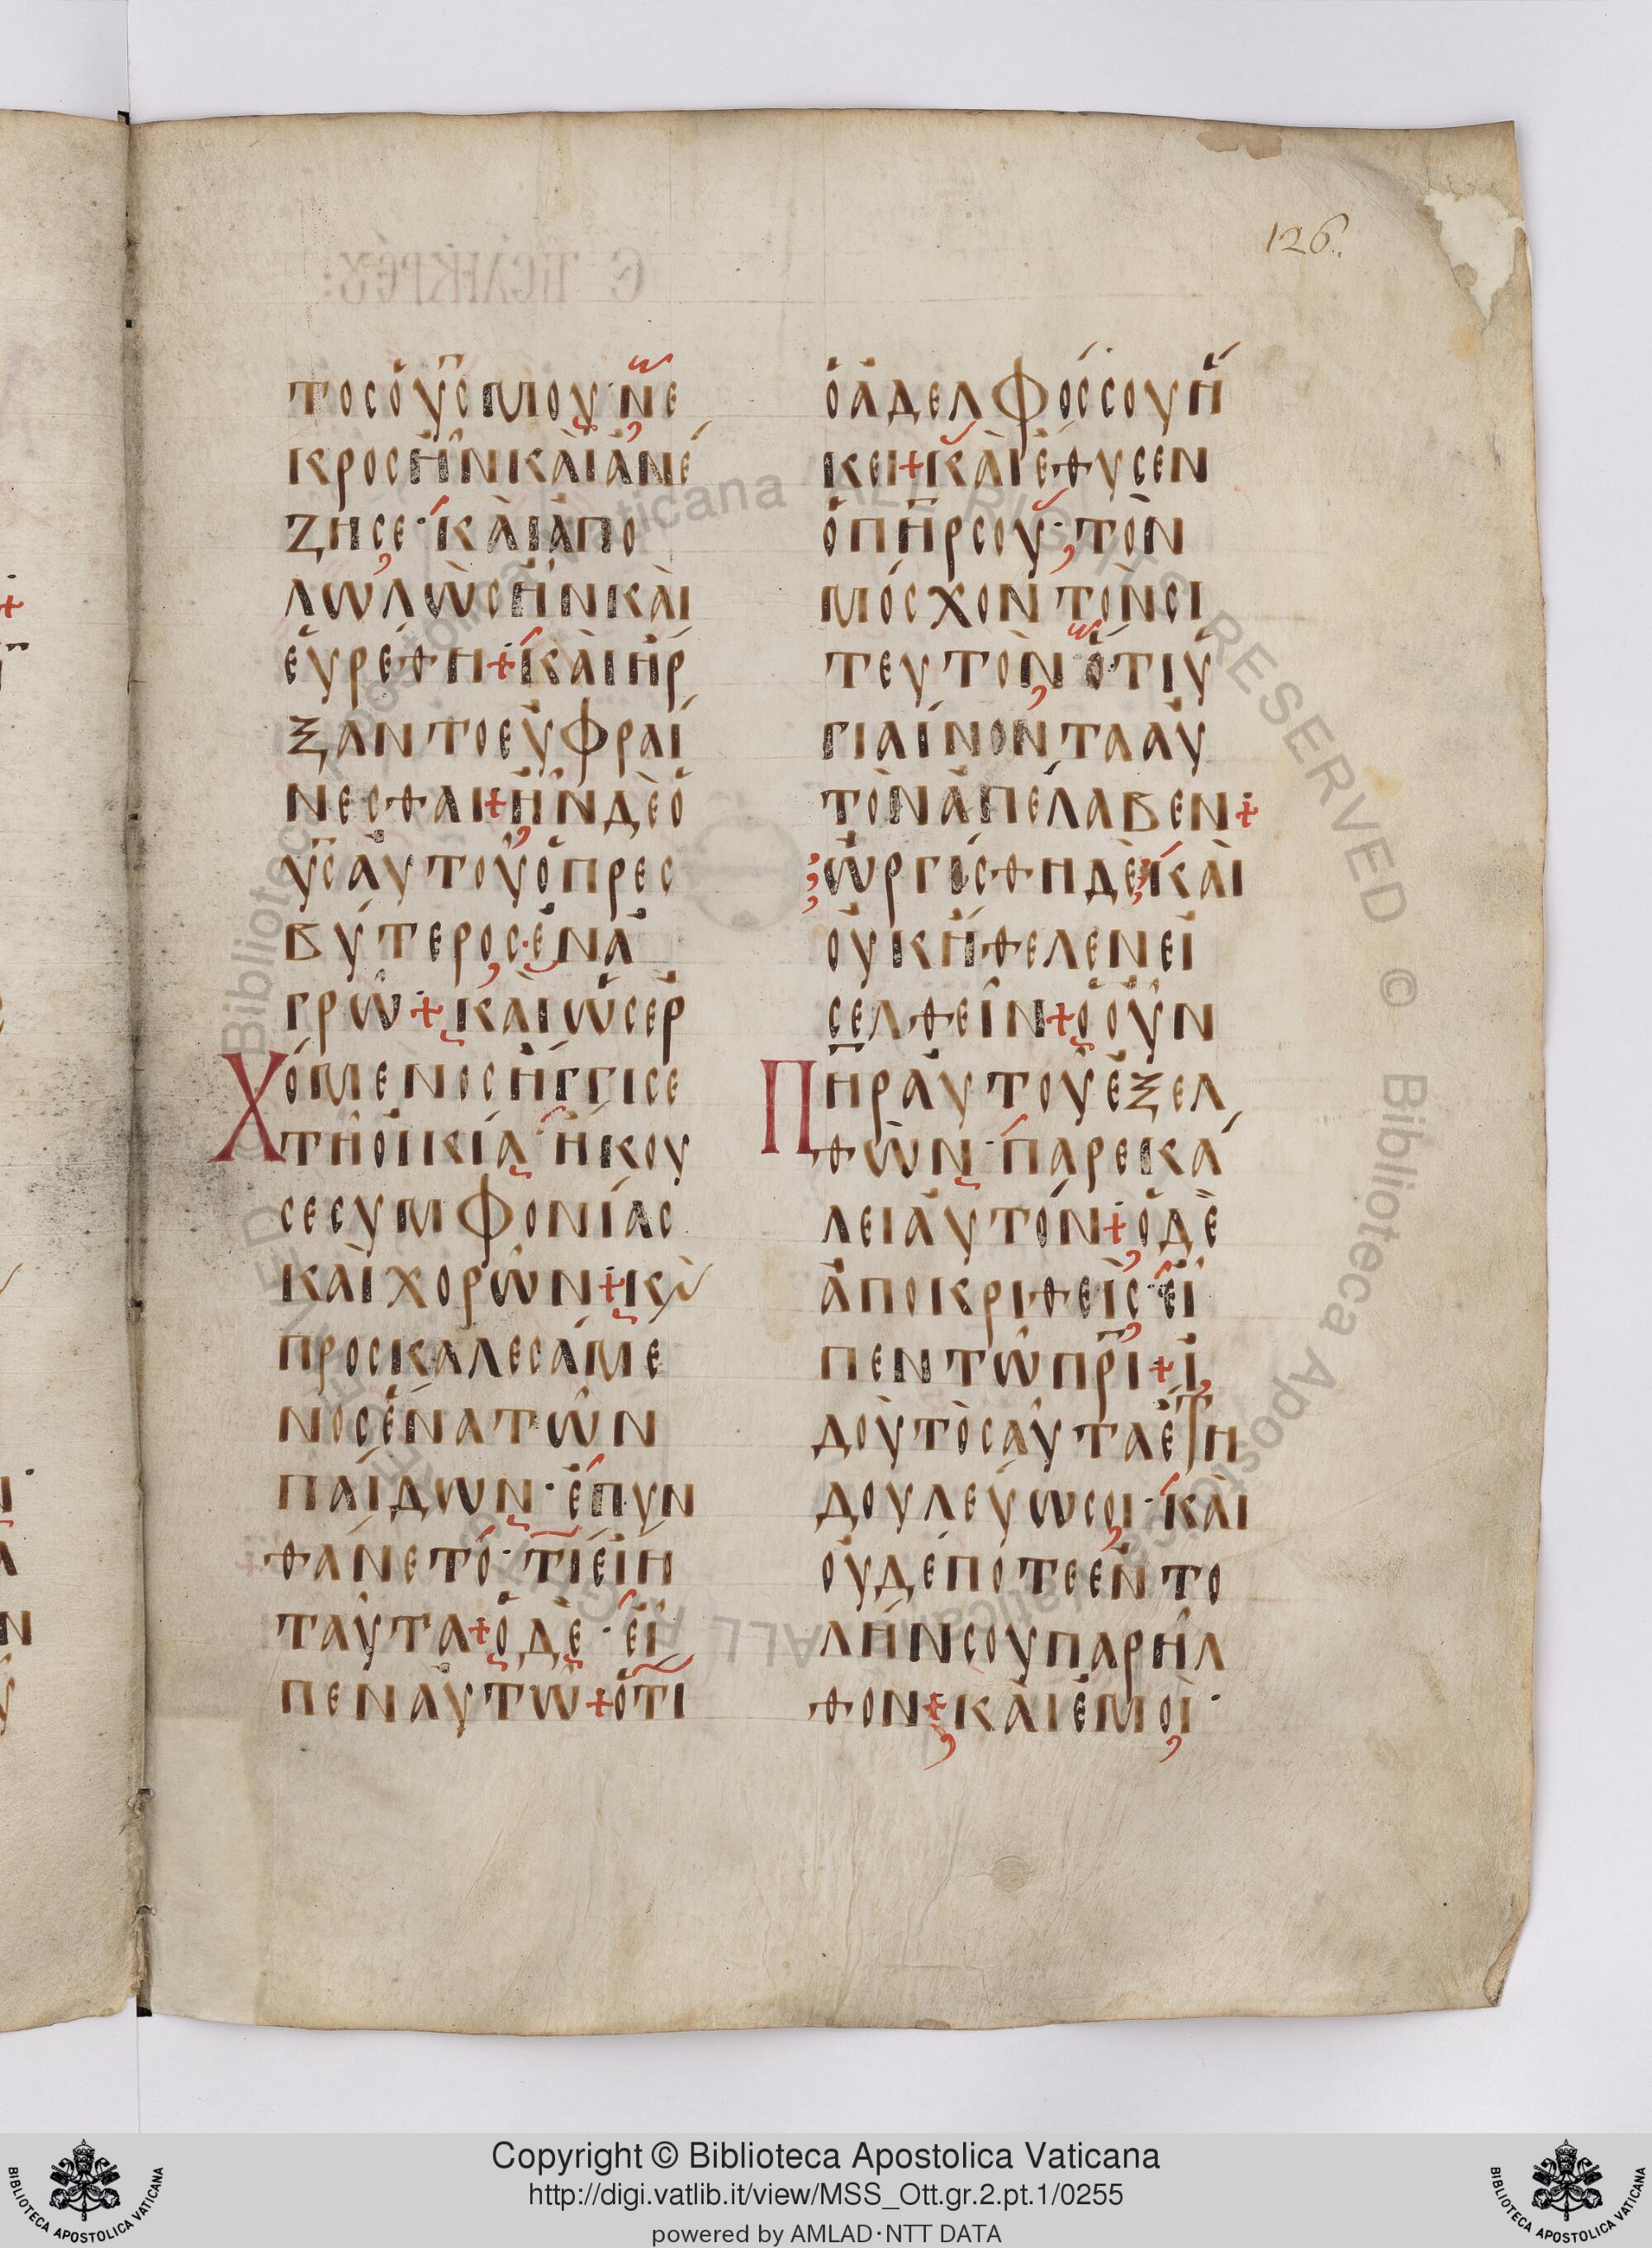 126.
τοσὁυ̅σμου·νε
κροσἦνκαὶἀνέ
ζησε·καὶἀπο
λωλὼσἦνκαὶ
εὑρέθη+καὶἤρ
ξαντοεὐφραί
νεσθαι+ἦνδὲὁ
υ̅σαὐτοῦὁπρεσ
βύτεροσ·ἐνἀ
γρῶ+καὶὡσερ
Χόμενοσἤγγισε
τῆοἰκία·ἤκου
σεσυμφονίασ
καὶχορῶν+κὶ
προσκαλεσάμε
νοσἕνατῶν
παίδων·ἐπυν
θάνετό·τίείη
ταῦτα+ὁδὲ·εἶ
πεναὐτῶ+ὅτι
ὁἀδελφόσσουἥ
κει+καὶἔθυσεν
ὁπη̅ρσου·τὸν
μόσχοντὸνσι
τευτὸνὅτιὑ
γιαίνοντααὐ
τὸνἀπέλαβεν+
ὠργίσθηδὲκαὶ
οὐκἤθελενεἰ
σελθεῖν+ὁοῦν
Πη̅ραὐτοῦἐξελ
θὼν·παρεκά
λειαὐτόν+ὁδὲ
ἀποκριθεὶσ·εἶ
πεντῶπρ̅ι+ἰ
δοὺτὸσαῦταἔτη
δουλεύωσοι·καὶ
οὐδέποτεἐντο
λήνσουπαρῆλ
θον+καὶἐμοὶ·
ALL RIGHTS RESERVED © Biblioteca Apostolica Vaticana
Copyright © Biblioteca Apostolica Vaticana
http://digi.vatlib.it/view/MSS_Ott.gr.2.pt.1/0255
powered by AMLAD·NTT DATA
BIBLIOTECA APOSTOLICA VATICANA
BIBLIOTECA APOSTOLICA VATICANA